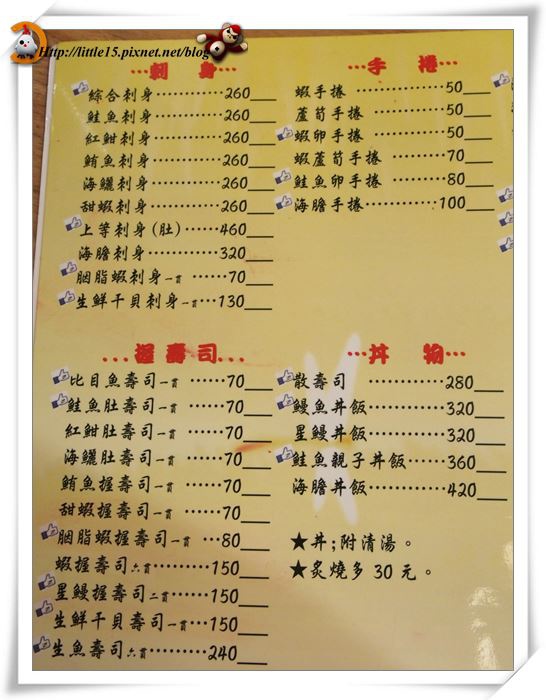 Http://little15.pixnet.net/blog
···刺 身···
綜合刺身············260
鮭魚刺身············260
紅魽刺身············260
鮪魚刺身············260
海鱺刺身············260
甜蝦刺身············260
上等刺身(肚)······460
海膽刺身············320
胭脂蝦刺身一貫······70
生鮮干貝刺身一貫···130
···手 捲···
蝦手捲············50
蘆筍手捲·········50
蝦卵手捲·········50
蝦蘆筍手捲·········70
鮭魚卵手捲·········80
海膽手捲············100
...握壽司...
比目魚壽司一貫······70
鮭魚肚壽司一貫······70
紅魽肚壽司一貫······70
海鱺肚壽司一貫······70
鮪魚握壽司一貫······70
甜蝦握壽司一貫······70
胭脂蝦握壽司一貫···80
蝦握壽司六貫·········150
星鰻握壽司二貫······150
生鮮干貝壽司一貫···150
生魚壽司六貫·········240
···丼 物···
散壽司············280
鰻魚丼飯············320
星鰻丼飯············320
鮭魚親子丼飯······360
海膽丼飯············420
★丼;附清湯。
★炙燒多30元。